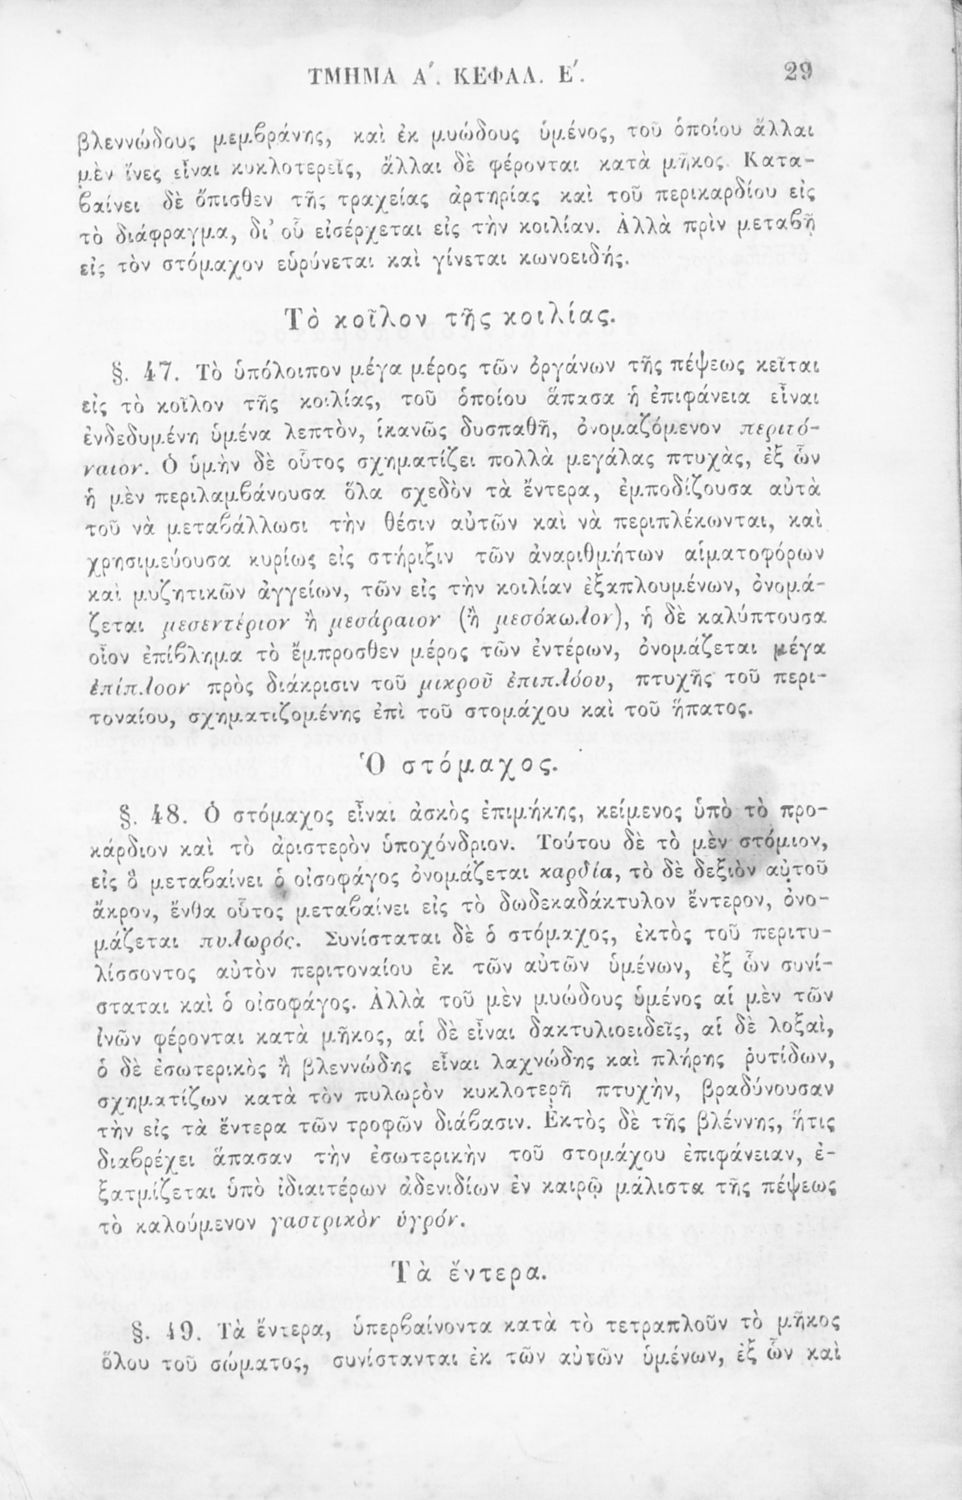 ΤΜΗΜΑ Α΄. ΚΕΦΑΛ. Ε΄. 29
βλεννώδους μεμβράνης, καὶ ἐκ μυώδους ὑμένος, τοῦ ὁποίου ἄλλαι
μὲν ἴνες εἶναι κυκλοτερεῖς, ἄλλαι δὲ φέρονται κατὰ μῆκος Κατα-
βαίνει δὲ ὄπισθεν τῆς τραχείας ἀρτηρίας καὶ τοῦ περικαρδίου εἰς
τὸ διάφραγμα, δι' οὗ εἰσέρχεται εἰς τὴν κοιλίαν. Ἀλλὰ πρὶν μεταβῇ
εἰς τὸν στόμαχον εὑρύνεται καὶ γίνεται κωνοειδής.
Τὸ κοῖλον τῆς κοιλίας.
§. 47. Τὸ ὑπόλοιπον μέγα μέρος τῶν ὀργάνων τῆς πέψεως κεῖται
εἰς τὸ κοῖλον τῆς κοιλίας, τοῦ ὁποίου ἅπασα ἡ ἐπιφάνεια εἶναι
ἐνδεδυμένη ὑμένα λεπτὸν, ἱκανῶς δυσπαθῆ, ὀνομαζόμενον περιτό-
ναιον. Ὁ ὑμὴν δὲ οὗτος σχηματίζει πολλὰ μεγάλας πτυχὰς, ἐξ ὧν
ἡ μὲν περιλαμβάνουσα ὅλα σχεδὸν τὰ ἔντερα, ἐμποδίζουσα αὐτὰ
τοῦ νὰ μεταβάλλωσι τὴν θέσιν αὐτῶν καὶ νὰ περιπλέκωνται, καὶ
χρησιμεύουσα κυρίως εἰς στήριξιν τῶν ἀναριθμήτων αἱματοφόρων
καὶ μυζητικῶν ἀγγείων, τῶν εἰς τὴν κοιλίαν ἐξαπλουμένων, ὀνομά-
ζεται μεσεντέριον ἢ μεσάραιον (ἢ μεσόκωλον), ἡ δὲ καλύπτουσα
οἷον ἐπίβλημα τὸ ἔμπροσθεν μέρος τῶν ἐντέρων, ὀνομάζεται μέγα
ἐπίπλοον πρὸς διάκρισιν τοῦ μικροῦ ἐπιπλόου, πτυχῆς τοῦ περι-
τοναίου, σχηματιζομένης ἐπὶ τοῦ στομάχου καὶ τοῦ ἥπατος.
Ὁ στόμαχος.
§. 48. Ὁ στόμαχος εἶναι ἀσκὸς ἐπιμήκης, κείμενος ὑπὸ τὸ προ-
κάρδιον καὶ τὸ ἀριστερὸν ὑποχόνδριον. Τούτου δὲ τὸ μὲν στόμιον,
εἰς ὃ μεταβαίνει ὁ οἰσοφάγος ὀνομάζεται καρδία, τὸ δὲ δεξιὸν αὐτοῦ
ἄκρον, ἔνθα οὗτος μεταβαίνει εἰς τὸ δωδεκαδάκτυλον ἔντερον, ὀνο-
μάζεται πυλωρός. Συνίσταται δὲ ὁ στόμαχος, ἐκτὸς τοῦ περιτυ-
λίσσοντος αὐτὸν περιτοναίου ἐκ τῶν αὐτῶν ὑμένων, ἐξ ὧν συνί-
σταται καὶ ὁ οἰσοφάγος. Ἀλλὰ τοῦ μὲν μυώδους ὑμένος αἱ μὲν τῶν
ἰνῶν φέρονται κατὰ μῆκος, αἱ δὲ εἶναι δακτυλιοειδεῖς, αἱ δὲ λοξαὶ,
ὁ δὲ ἐσωτερικὸς ἢ βλεννώδης εἶναι λαχνώδης καὶ πλήρης ῥυτίδων,
σχηματίζων κατὰ τὸν πυλωρὸν κυκλοτερῆ πτυχὴν, βραδύνουσαν
τὴν εἰς τὰ ἔντερα τῶν τροφῶν διάβασιν. Ἐκτὸς δὲ τῆς βλέννης, ἥτις
διαβρέχει ἅπασαν τὴν ἐσωτερικὴν τοῦ στομάχου ἐπιφάνειαν, ἐ-
ξατμίζεται ὑπὸ ἰδιαιτέρων ἀδενιδίων ἐν καιρῷ μάλιστα τῆς πέψεως
τὸ καλούμενον γαστρικὸν ὑγρόν.
Τὰ ἔντερα.
§. 49. Τὰ ἔντερα, ὑπερβαίνοντα κατὰ τὸ τετραπλοῦν τὸ μῆκος
ὅλου τοῦ σώματος, συνίστανται ἐκ τῶν αὐτῶν ὑμένων, ἐξ ὧν καὶ